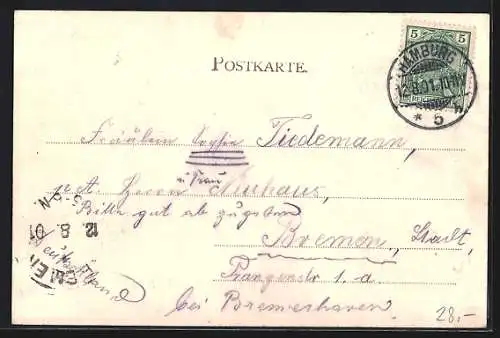 POSTKARTE.
5 5
HAMBURG
12.8.01. 10-11
* 5 h.
Fräulein Sophie Tiedemann,
u. Frau
p. A. Herrn Neuhaus,
Bitte gut ab zugeben
Bremen, Stadt,
12 8 01
N.
1. a.
bei Bremerhaven
28.-